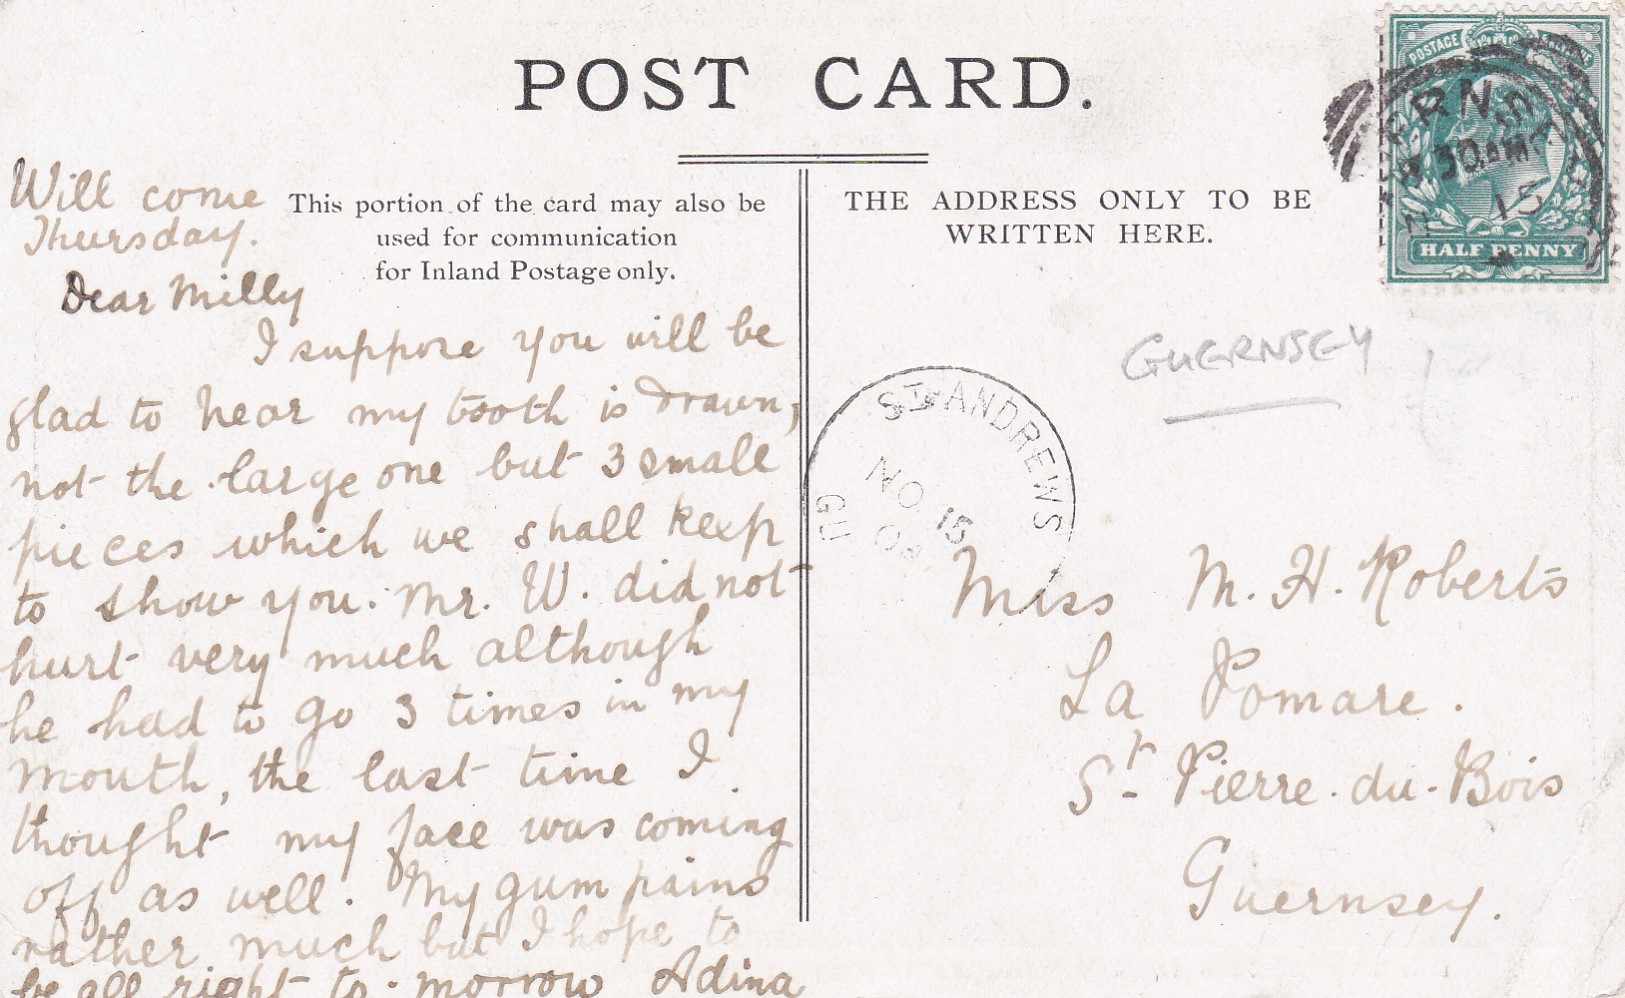 POST CARD.
Will come
Thursday.
This portion of the card may also be
used for communication
for Inland Postage only.
THE ADDRESS ONLY TO BE
WRITTEN HERE.
POSTAGE
HALF PENNY
30 AM
15
Dear Milly
I suppose you will be
glad to hear my tooth is drawn,
not the large one but 3 small
pieces which we shall keep
to show you. Mr. W. did not
hurt very much although
he had to go 3 times in my
mouth, the last time I
thought my face was coming
off as well. My gum pains
rather much but I hope to
be all right to-morrow Adina
GUERNSEY
ST ANDREWS
NO 15
GU
Miss M. H. Roberts
La Pomare.
St Pierre-du-Bois
Guernsey.